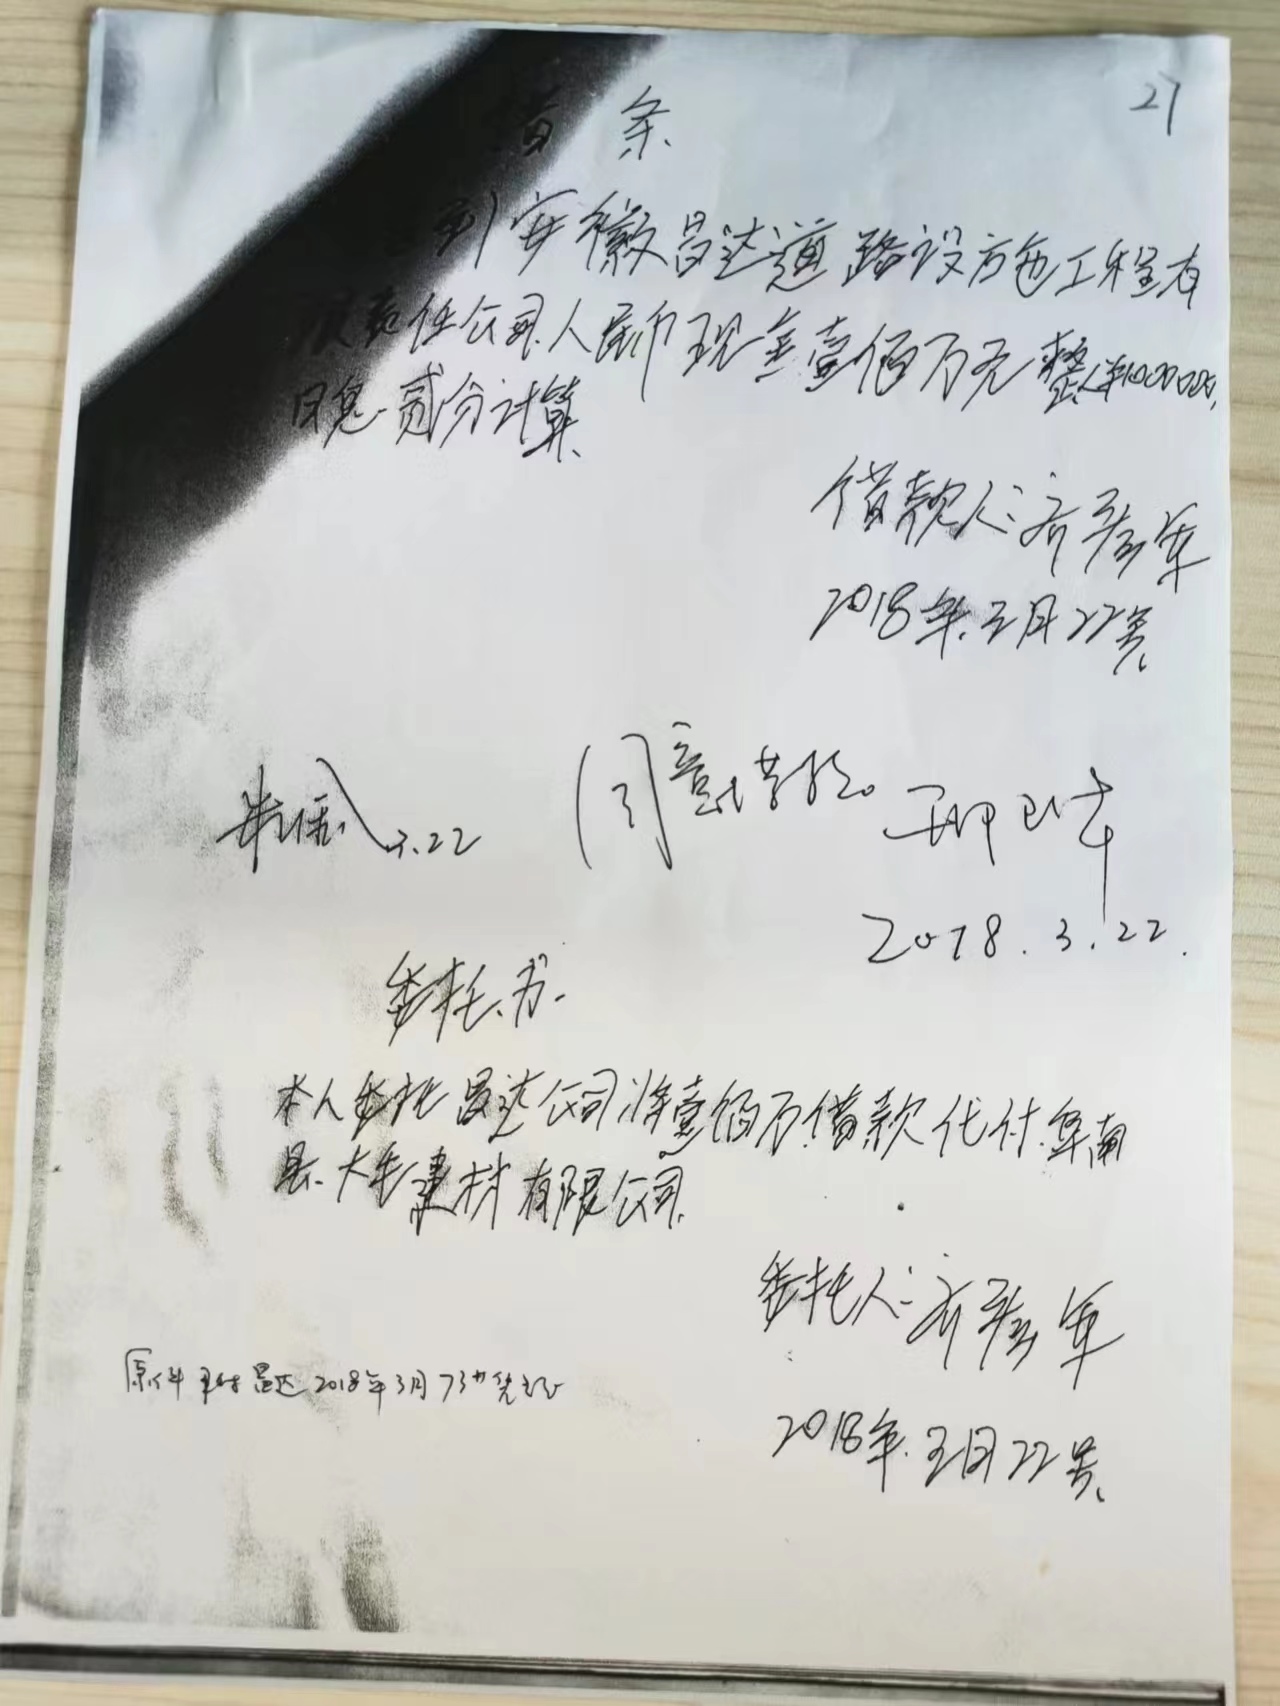 27
借条
到安徽昌达道路设施工程有
限责任公司人民币现金壹佰万元整(¥1000000)
月息贰分计算
借款人:齐彦军
2018年三月22号
3.22 同意借款。
2018.3.22.
委托书
本人委托昌达公司将壹佰万借款代付阜南
县大年建材有限公司
委托人:齐彦军
2018年三月22号
原件 昌达2018年3月73#凭证